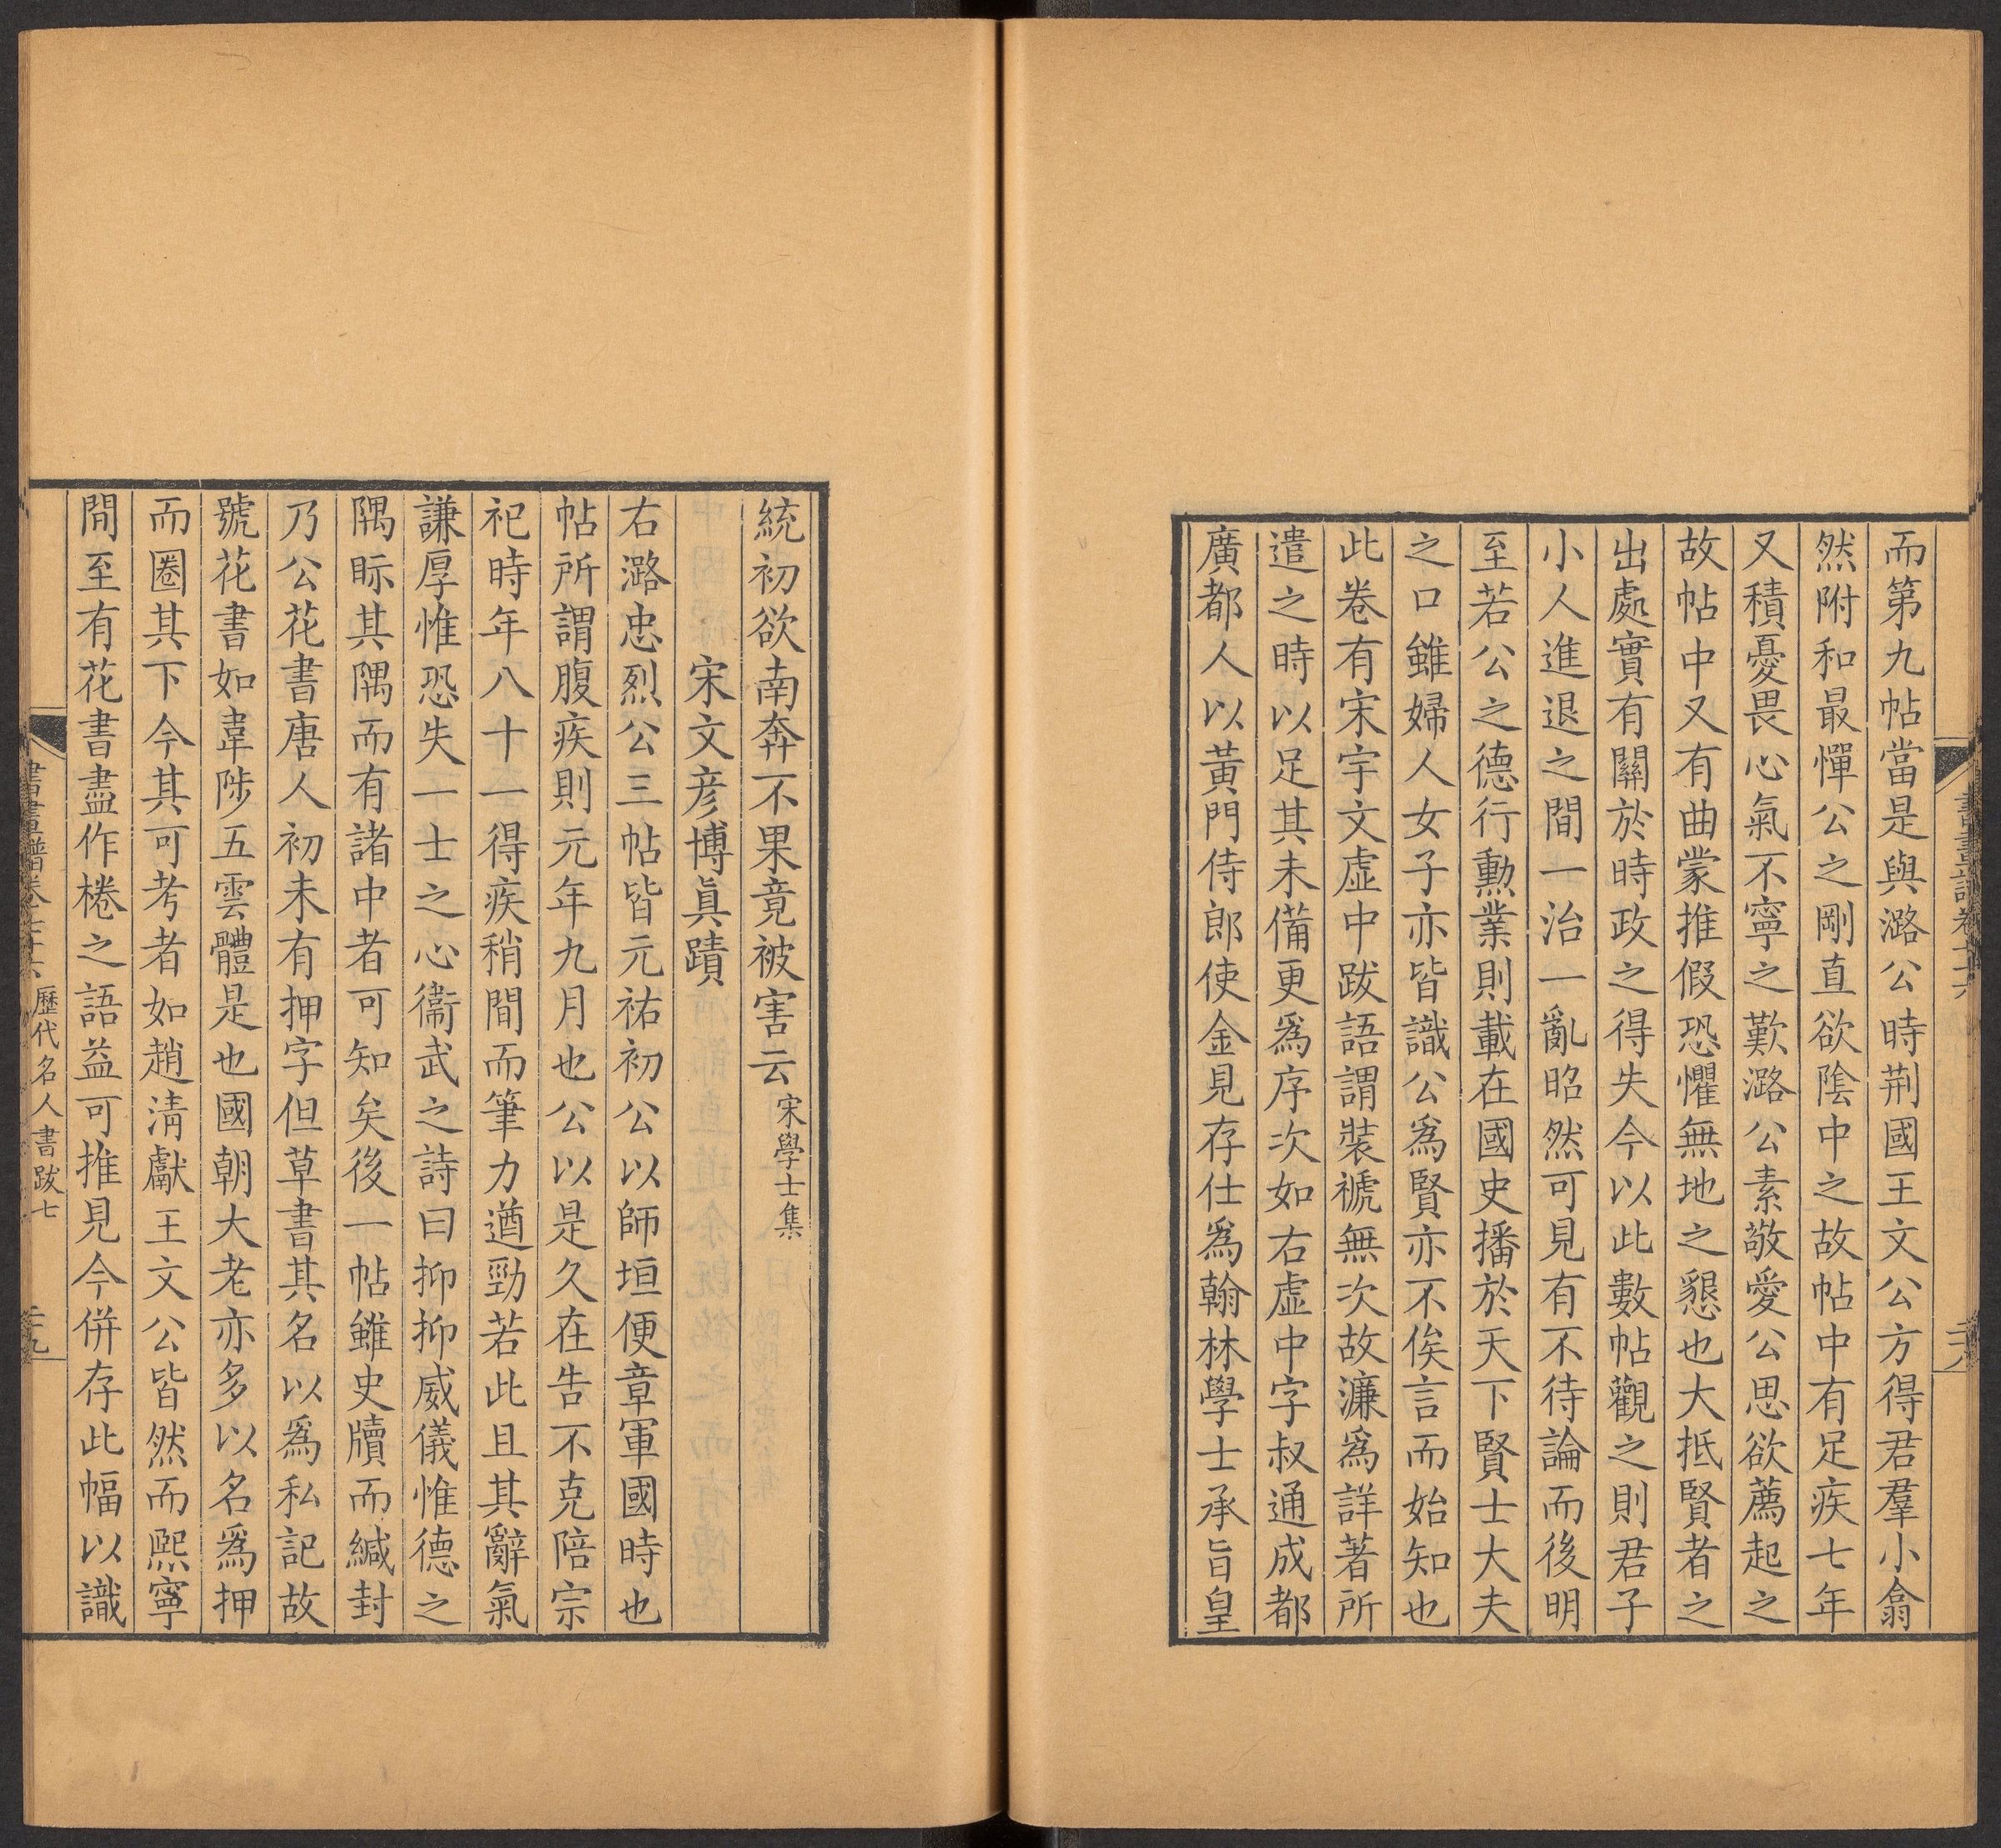 而第九帖當是與潞公時荆國王文公方得君羣小翕
然附和最憚公之剛直欲陰中之故帖中有足疾七年
又積憂畏心氣不寧之歎潞公素敬愛公思欲薦起之
故帖中又有曲蒙推假恐懼無地之懇也大抵賢者之
出處實有關於時政之得失今以此數帖觀之則君子
小人進退之間一治一亂昭然可見有不待論而後明
至若公之德行勳業則載在國史播於天下賢士大夫
之口雖婦人女子亦皆識公爲賢亦不俟言而始知也
此卷有宋宇文虛中跋語謂裝褫無次故濂爲詳著所
遣之時以足其未備更爲序次如右虛中字叔通成都
廣都人以黃門侍郎使金見存仕爲翰林學士承旨皇
統初欲南奔不果竟被害云宋學士集
宋文彥博眞蹟
右潞忠烈公三帖皆元祐初公以師垣便章軍國時也
帖所謂腹疾則元年九月也公以是久在告不克陪宗
祀時年八十一得疾稍間而筆力遒勁若此且其辭氣
謙厚惟恐失一士之心衞武之詩曰抑抑威儀惟德之
隅眎其隅而有諸中者可知矣後一帖雖史牘而緘封
乃公花書唐人初未有押字但草書其名以爲私記故
號花書如韋陟五雲體是也國朝大老亦多以名爲押
而圈其下今其可考者如趙淸獻王文公皆然而熙寧
間至有花書盡作棬之語益可推見今併存此幅以識
書畫譜卷七十六 歷代名人書跋七 二十九